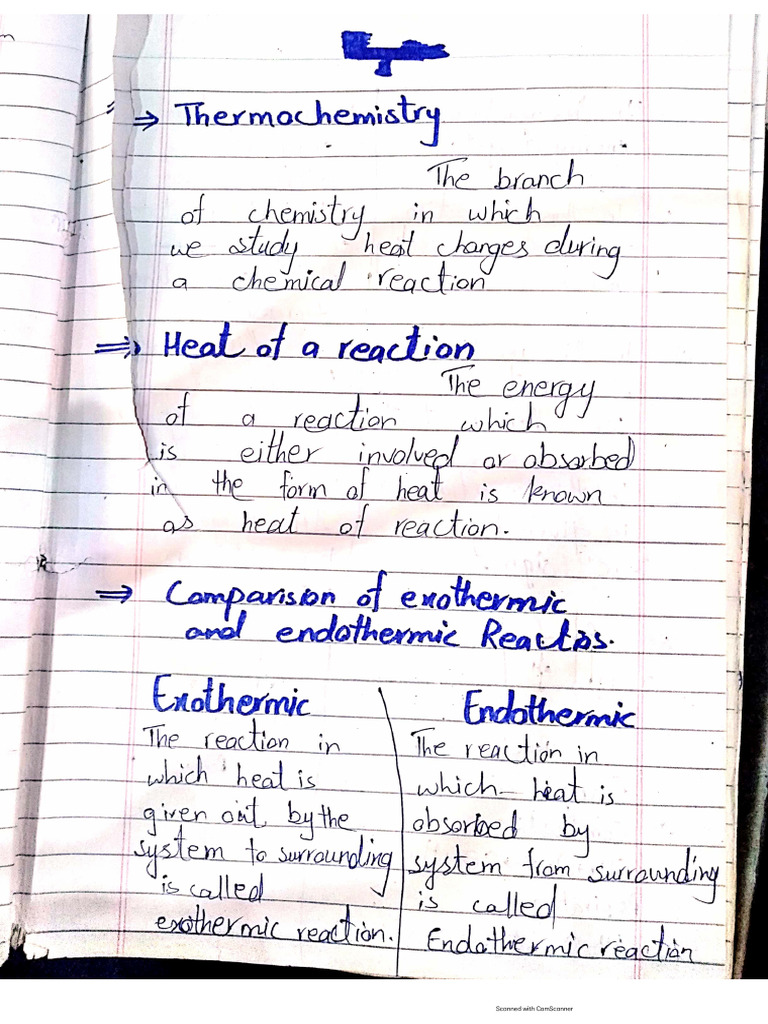 ⇒ Thermochemistry
The branch
of chemistry in which
we study heat changes during
a chemical reaction
⇒ Heat of a reaction
The energy
of a reaction which
is either involved or absorbed
in the form of heat is known
as heat of reaction.
⇒ Comparision of exothermic
and endothermic Reactios.
Exothermic
The reaction in
which heat is
given out by the
system to surrounding
is called
exothermic reaction.
Endothermic
The reaction in
which heat is
absorbed by
system from surrounding
is called
Endothermic reaction
Scanned with CamScanner